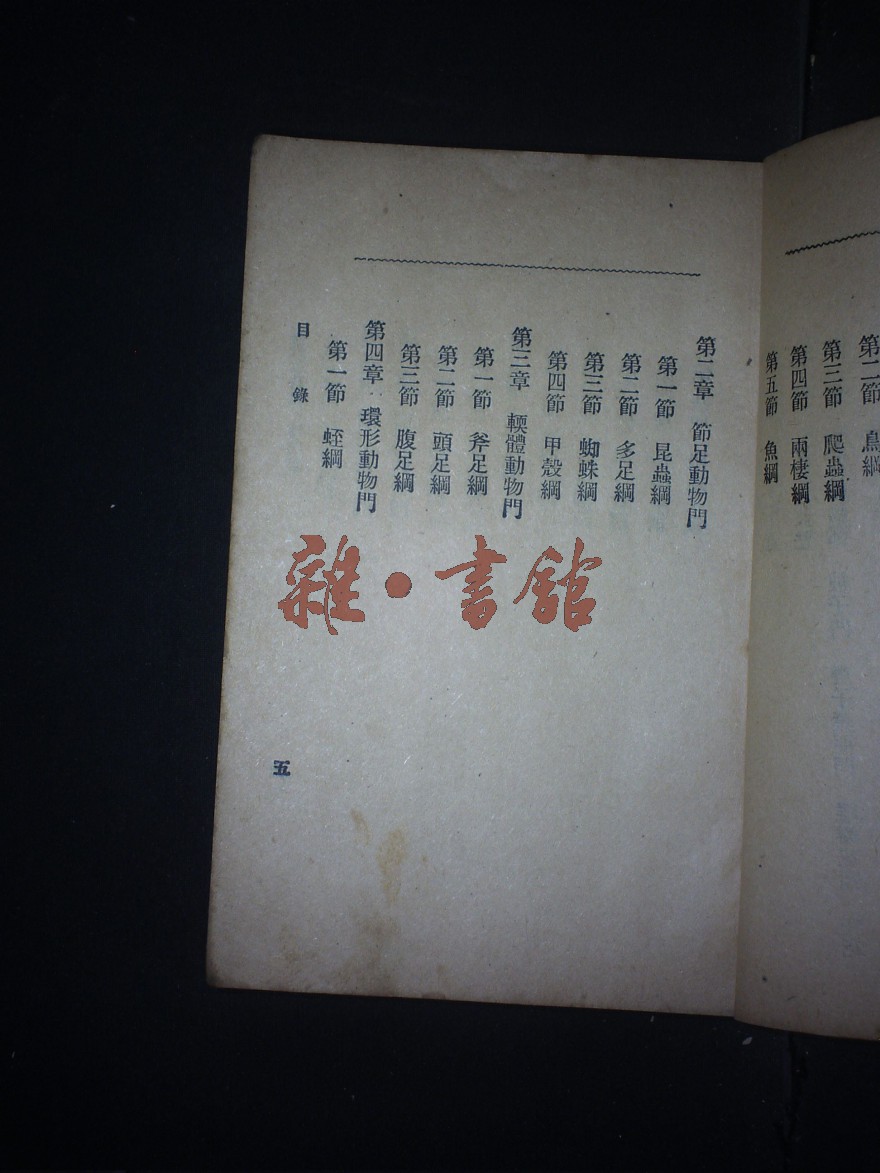 第二節 鳥綱
第三節 爬蟲綱
第四節 兩棲綱
第五節 魚綱
第二章 節足動物門
第一節 昆蟲綱
第二節 多足綱
第三節 蜘蛛綱
第四節 甲殼綱
第三章 輭體動物門
第一節 斧足綱
第二節 頭足綱
第三節 腹足綱
第四章 環形動物門
第一節 蛭綱
目錄
五
雜·書館